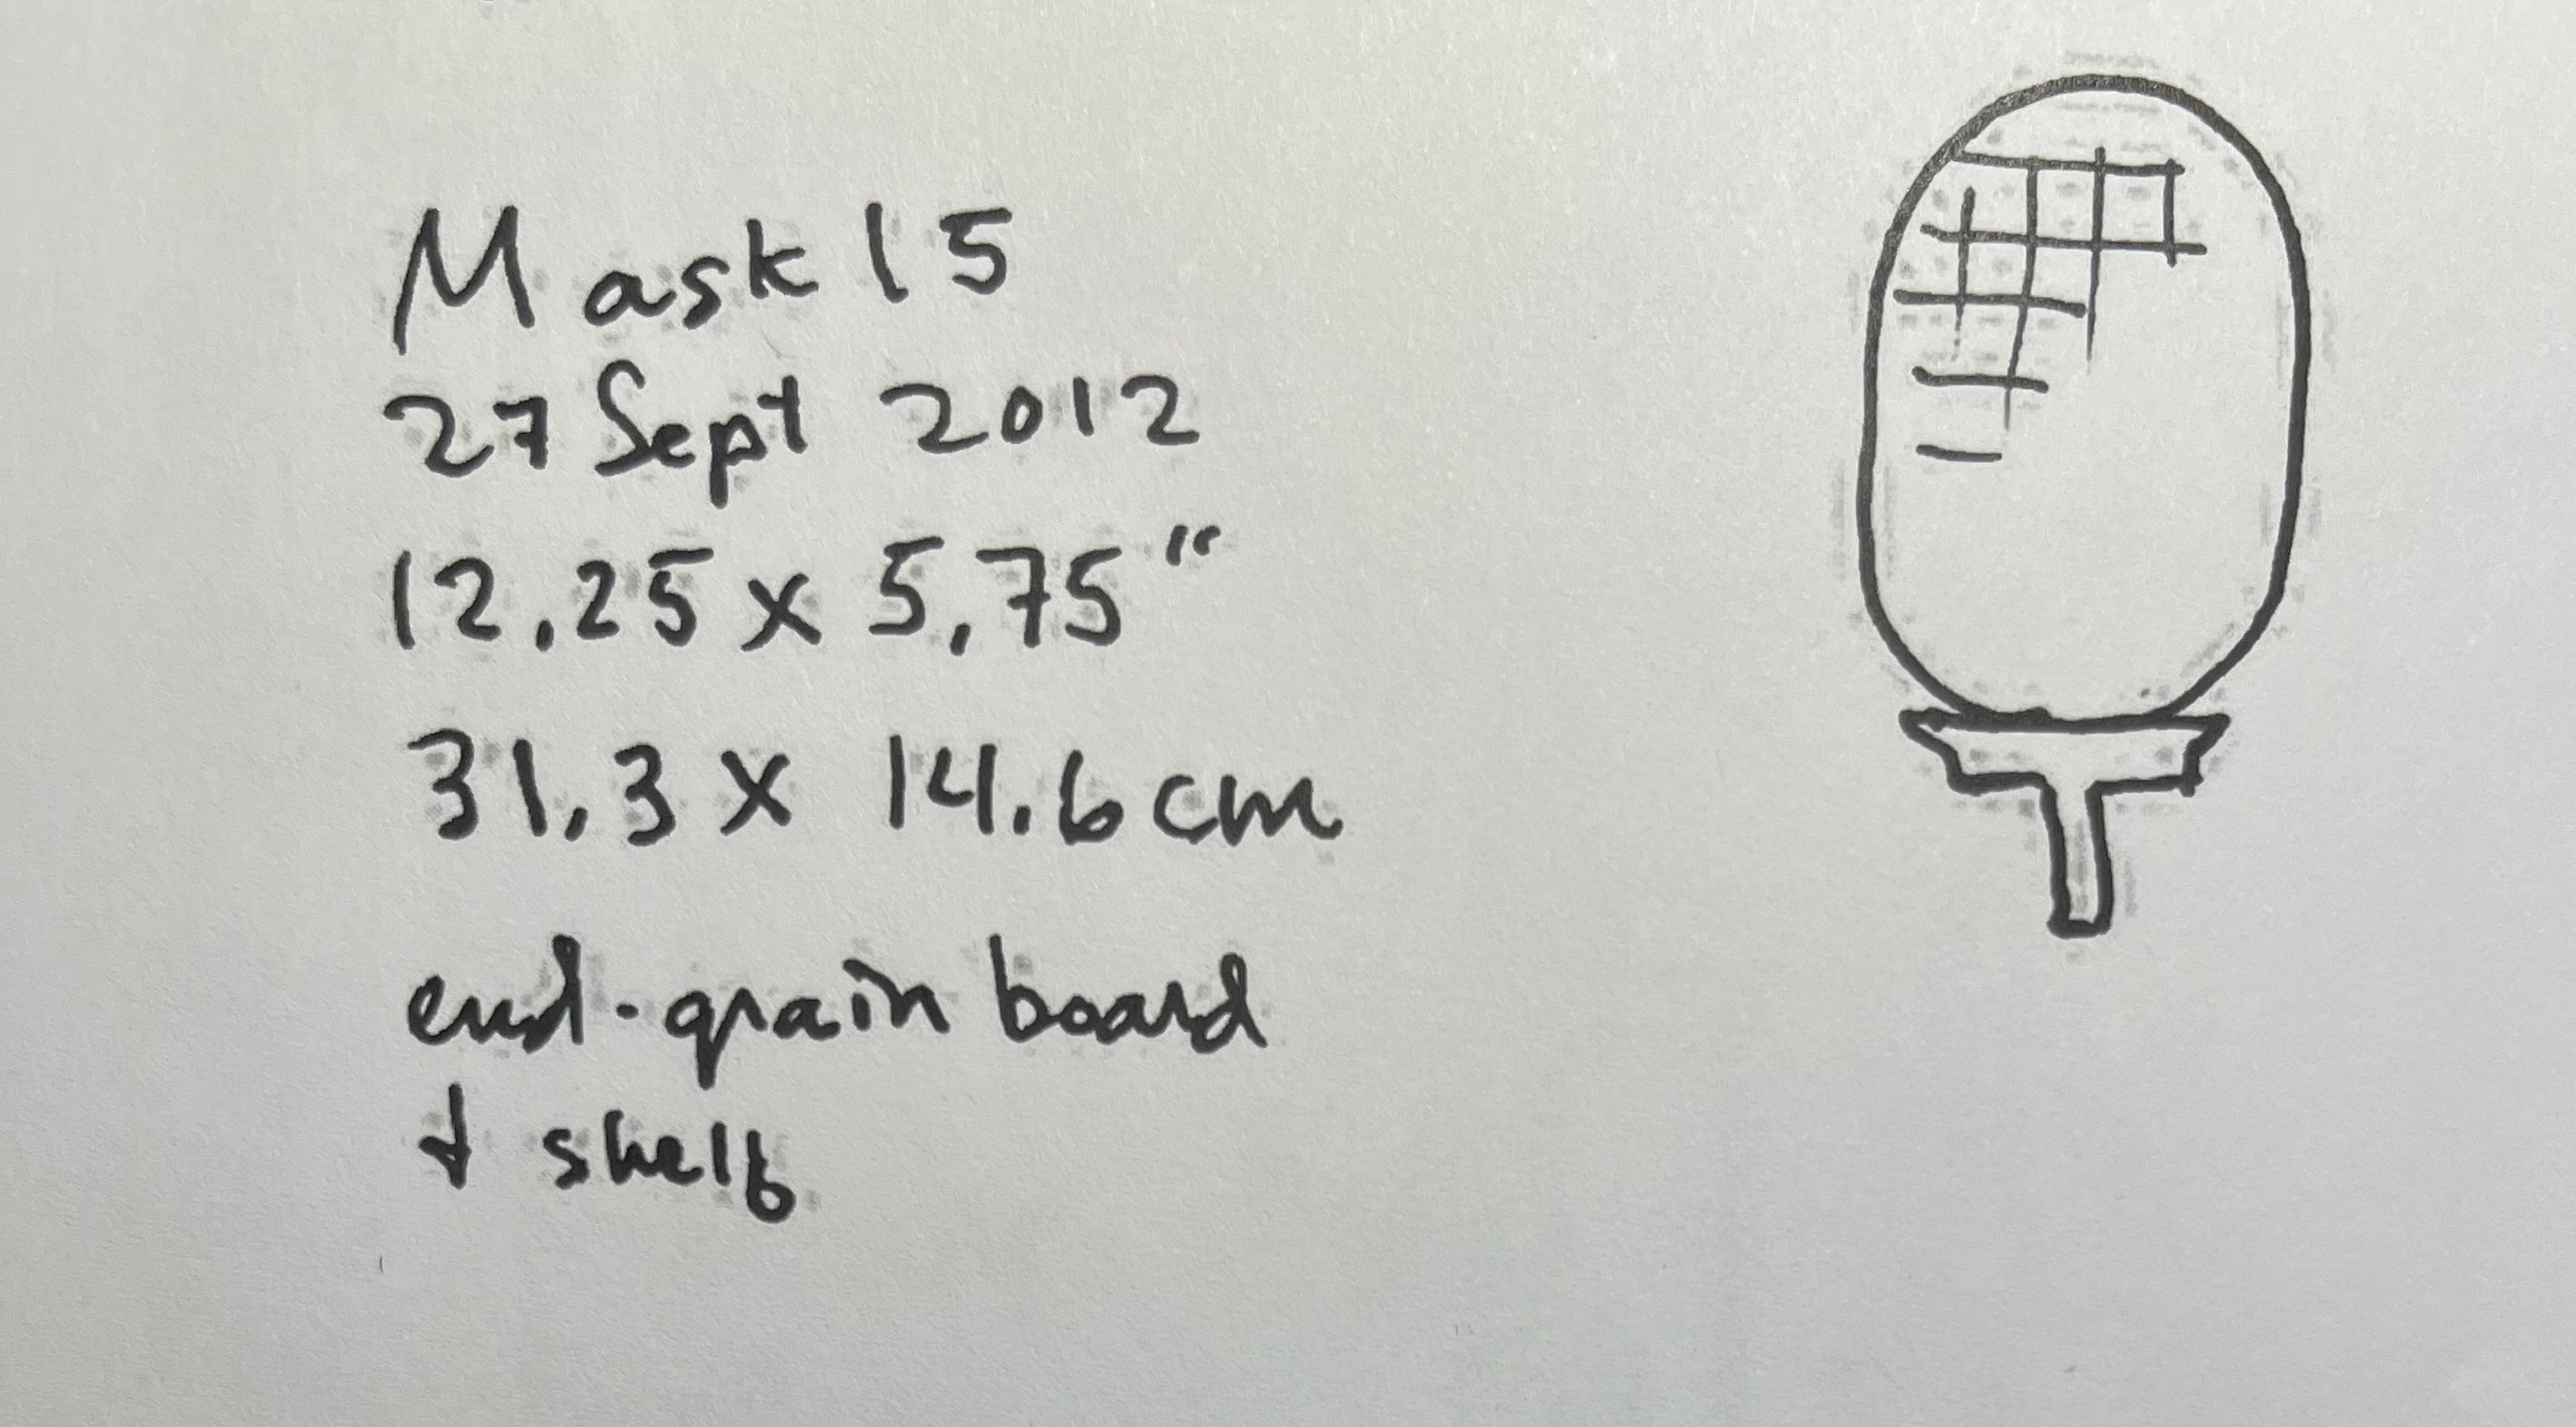 Mask 15
27 Sept 2012
12.25 x 5.75"
31.3 x 14.6 cm
end-grain board
& shelf